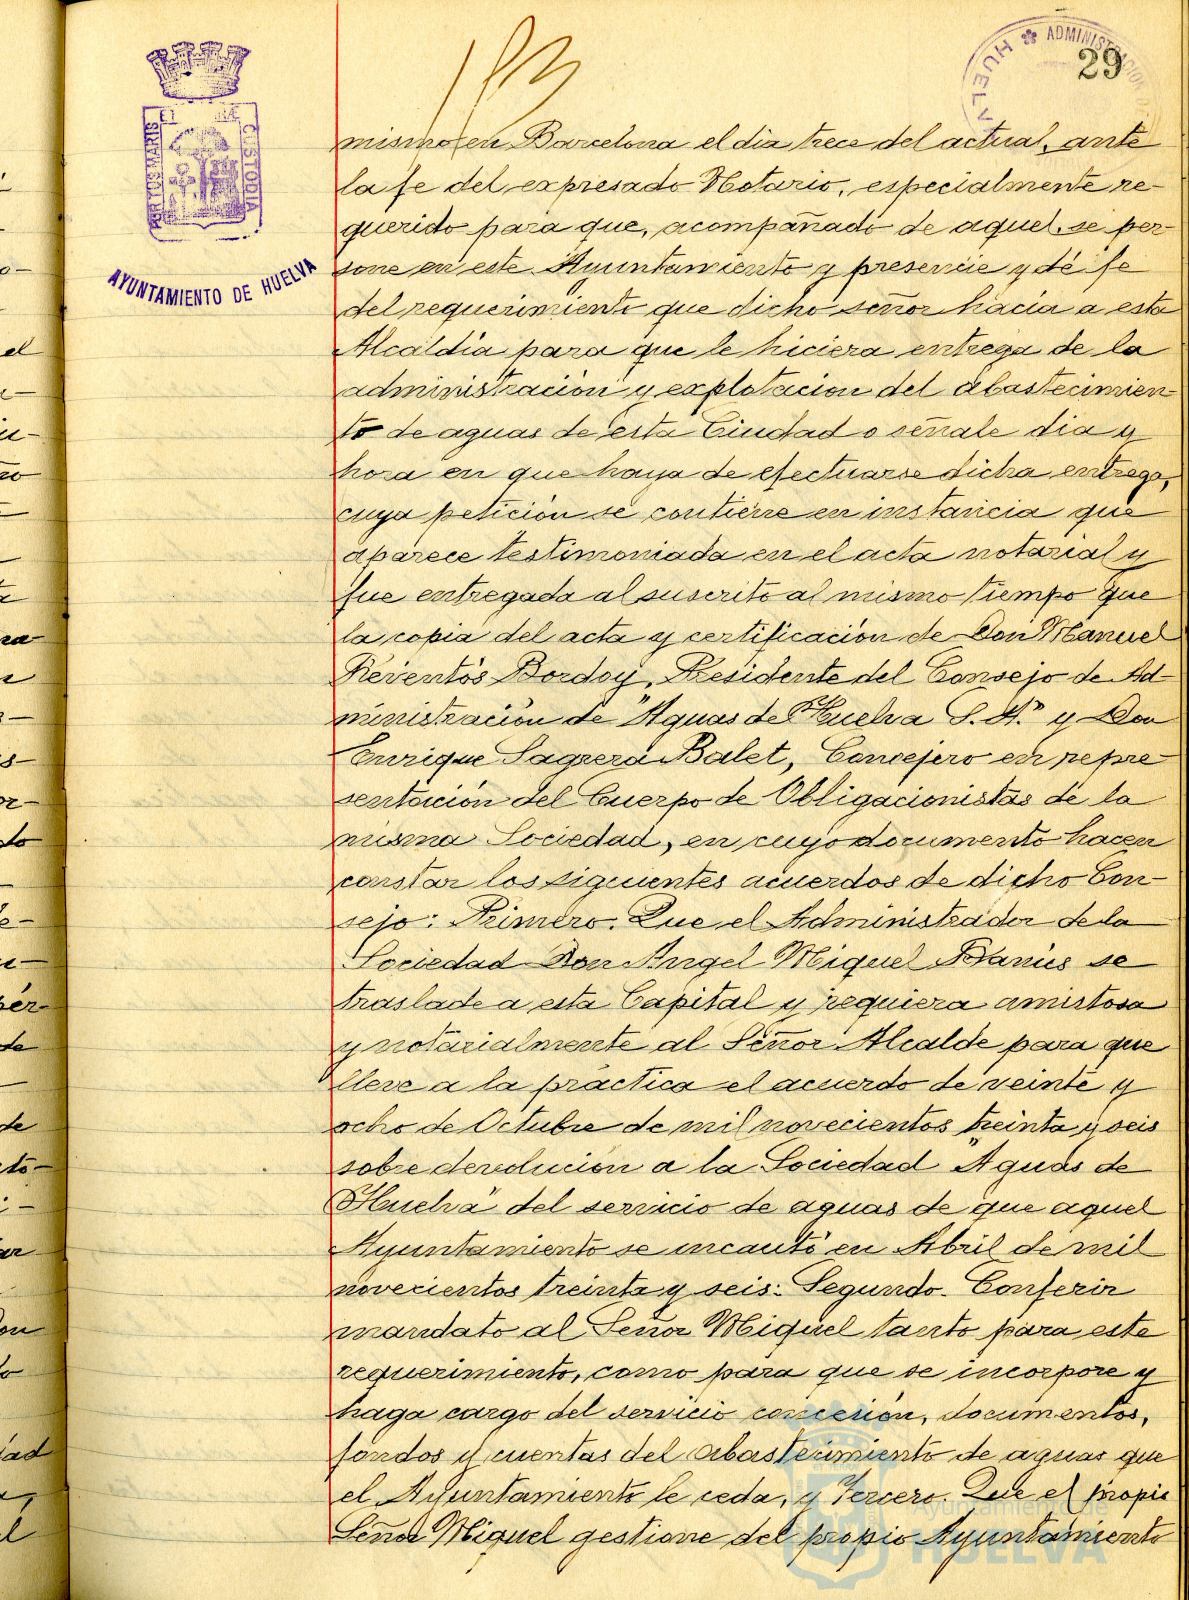 29
ADMINISTRACION
HUELV
PORTUS MARIS ET TERRAE CUSTODIA
AYUNTAMIENTO DE HUELVA
mismo en Barcelona el dia trece del actual, ante
la fe del expresado Notario, especialmente re-
querido para que, acompañado de aquel, se per-
sone en este Ayuntamiento y presencie y dé fe
del requerimiento que dicho señor hacía a esta
Alcaldía para que le hiciera entrega de la
administración y explotacion del abastecimien-
to de aguas de esta Ciudad o señale dia y
hora en que haya de efectuarse dicha entrega,
cuya petición se contiene en instancia que
aparece testimoniada en el acta notarial y
fue entregada al suscrito al mismo tiempo que
la copia del acta y certificación de Don Manuel
Reventós Bordoy, Presidente del Consejo de Ad-
ministración de "Aguas de Huelva S.A." y Don
Enrique Sagrera Balet, Concejero en repre-
sentación del Cuerpo de Obligacionistas de la
misma Sociedad, en cuyo documento hacen
constar los siguientes acuerdos de dicho Con-
sejo: Primero. Que el Administrador de la
Sociedad Don Angel Miquel Banús se
traslade a esta Capital y requiera amistosa
y notarialmente al Señor Alcalde para que
lleve a la práctica el acuerdo de veinte y
ocho de Octubre de mil novecientos treinta y seis
sobre devolución a la Sociedad "Aguas de
Huelva" del servicio de aguas de que aquel
Ayuntamiento se incautó en Abril de mil
novecientos treinta y seis: Segundo. Conferir
mandato al Señor Miquel tanto para este
requerimiento, como para que se incorpore y
haga cargo del servicio concesión, documentos,
fondos y cuentas del abastecimiento de aguas que
el Ayuntamiento le ceda, y Tercero. Que el propio
Señor Miquel gestione del propio Ayuntamiento
Ayuntamiento de
HUELVA